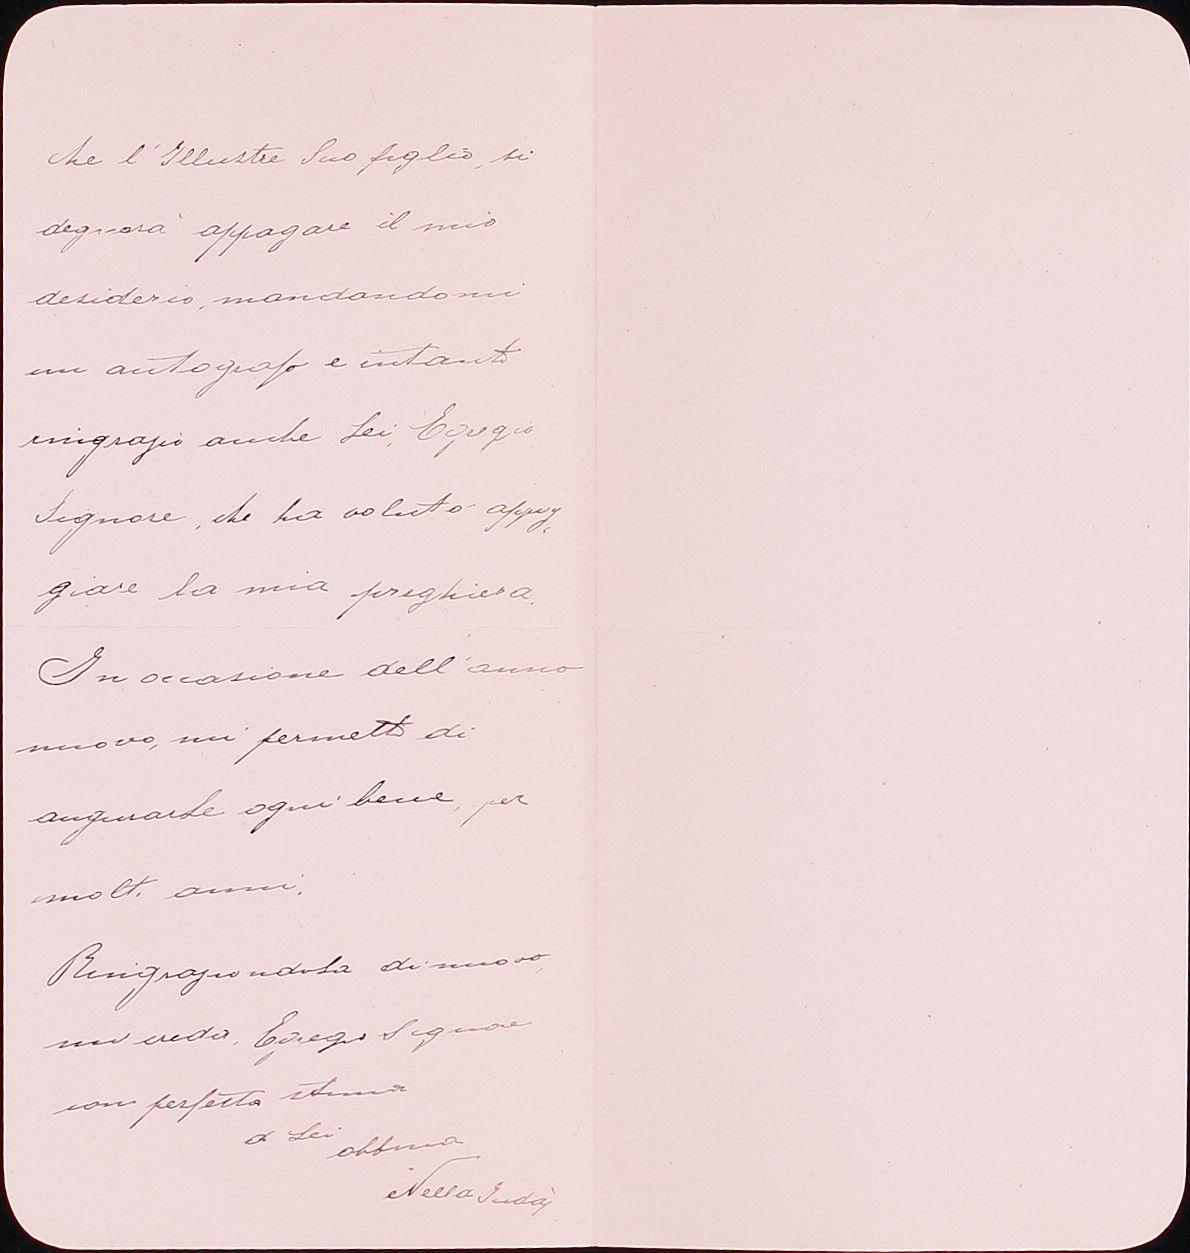 che l'Illustre Suo figlio, si
degnerà appagare il mio
desiderio, mandandomi
un autografo e intanto
ringrazio anche Lei, Egregio
Signore, che ha voluto appog,
giare la mia preghiera.
In occasione dell'anno
nuovo, mi permetto di
augurarLe ogni bene, per
molti anni.
RingraziandoLa di nuovo,
mi creda, Egregio Signore
con perfetta stima
a Lei
obbma
Nella